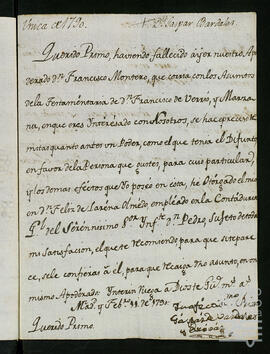 Unica de 1790.
Dn. Gaspar
Querido Primo, haviendo fallecido aqui nuestro Apo-
derado dn. Francisco Montero, que corria con los Asuntos
de la Testamentaria de dn. Francisco de Verrio, y
en que eres Interesado con Nosotros, se hace preciso
mitas quanto antes un Poder, como el que tenia el Difunto,
en favor de la Persona que gustes, para cuio particular,
y los demas efectos que Yo poseo en esta, he otorgado el mio
en dn. Felix de Olmedo, empleado en la Contaduria
Gral. del Serenissimo Sor. Infte. dn. Pedro, Sujeto de toda
mi Satisfacion, el que te recomiendo para que si te pare-
ce, se le confieras á él, para que recaiga el Asunto, en un
mismo Apoderado: Ynterin Ruego á Dios te Gude. ms. as.
Madd. y Febro. 1790.
Querido Primo.